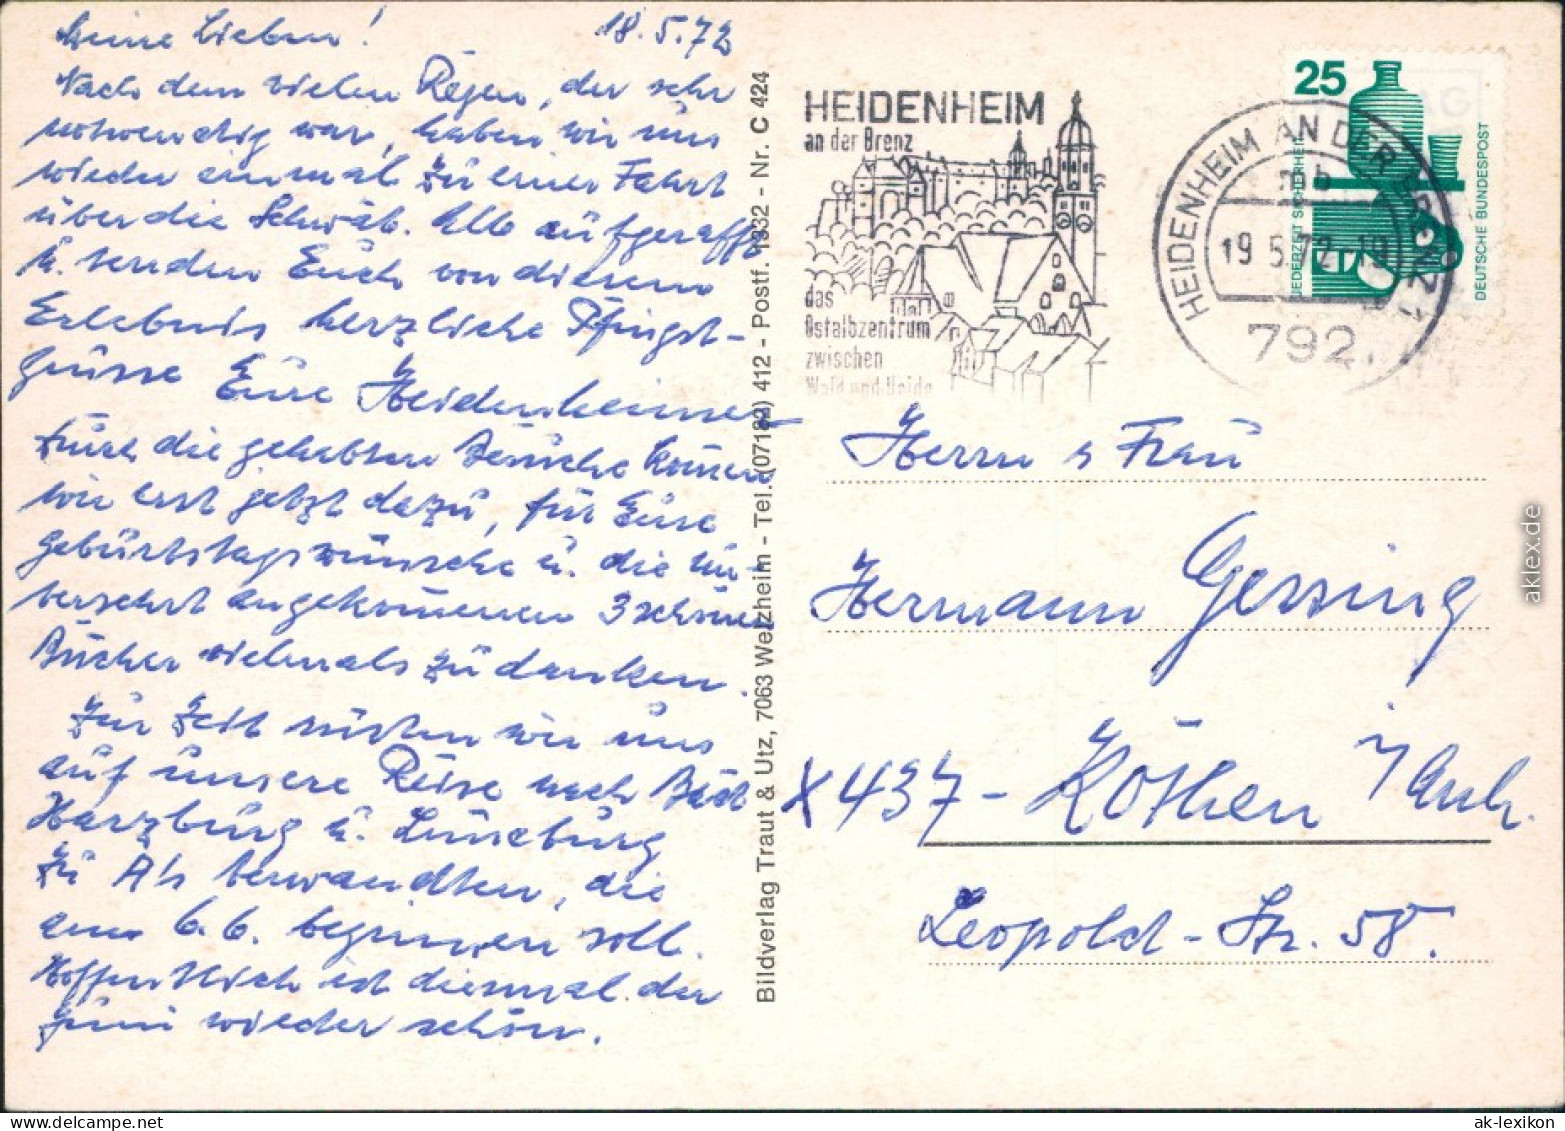 Meine Lieben! 18.5.72
Nach dem vielen Regen, der sehr
notwendig war, haben wir uns
wieder einmal zu einer Fahrt
über die Schwäb. Alb aufgerafft
u. senden Euch von diesem
Erlebnis herzliche Pfingst-
grüsse Eure Heidenheimer
Durch die gehabten Besuche komen
wir erst jetzt dazu, für Eure
Geburtstagswünsche u. die un-
versehrt angekommenen 3 schönen
Bücher vielmals zu danken.
Zur Zeit rüsten wir uns
auf unsere Reise nach Bad
Harzburg u. Lüneburg
zu Verwandten, die
am 6.6. beginnen soll.
Hoffentlich ist diesmal der
Juni wieder schön.
Bildverlag Traut & Utz, 7063 Welzheim - Tel. (07182) 412 - Postf. 1332 - Nr. C 424
HEIDENHEIM
an der Brenz
das
Ostalbzentrum
zwischen
Wald und Heide
HEIDENHEIM AN DER BRENZ 1
mb
19.5.72-19
792
25
JEDERZEIT SICHERHEIT
DEUTSCHE BUNDESPOST
Herrn & Frau
Hermann Gersing
X 437- Köthen / Anh.
Leopold-Str. 58.
aklex.de
ak-lexikon